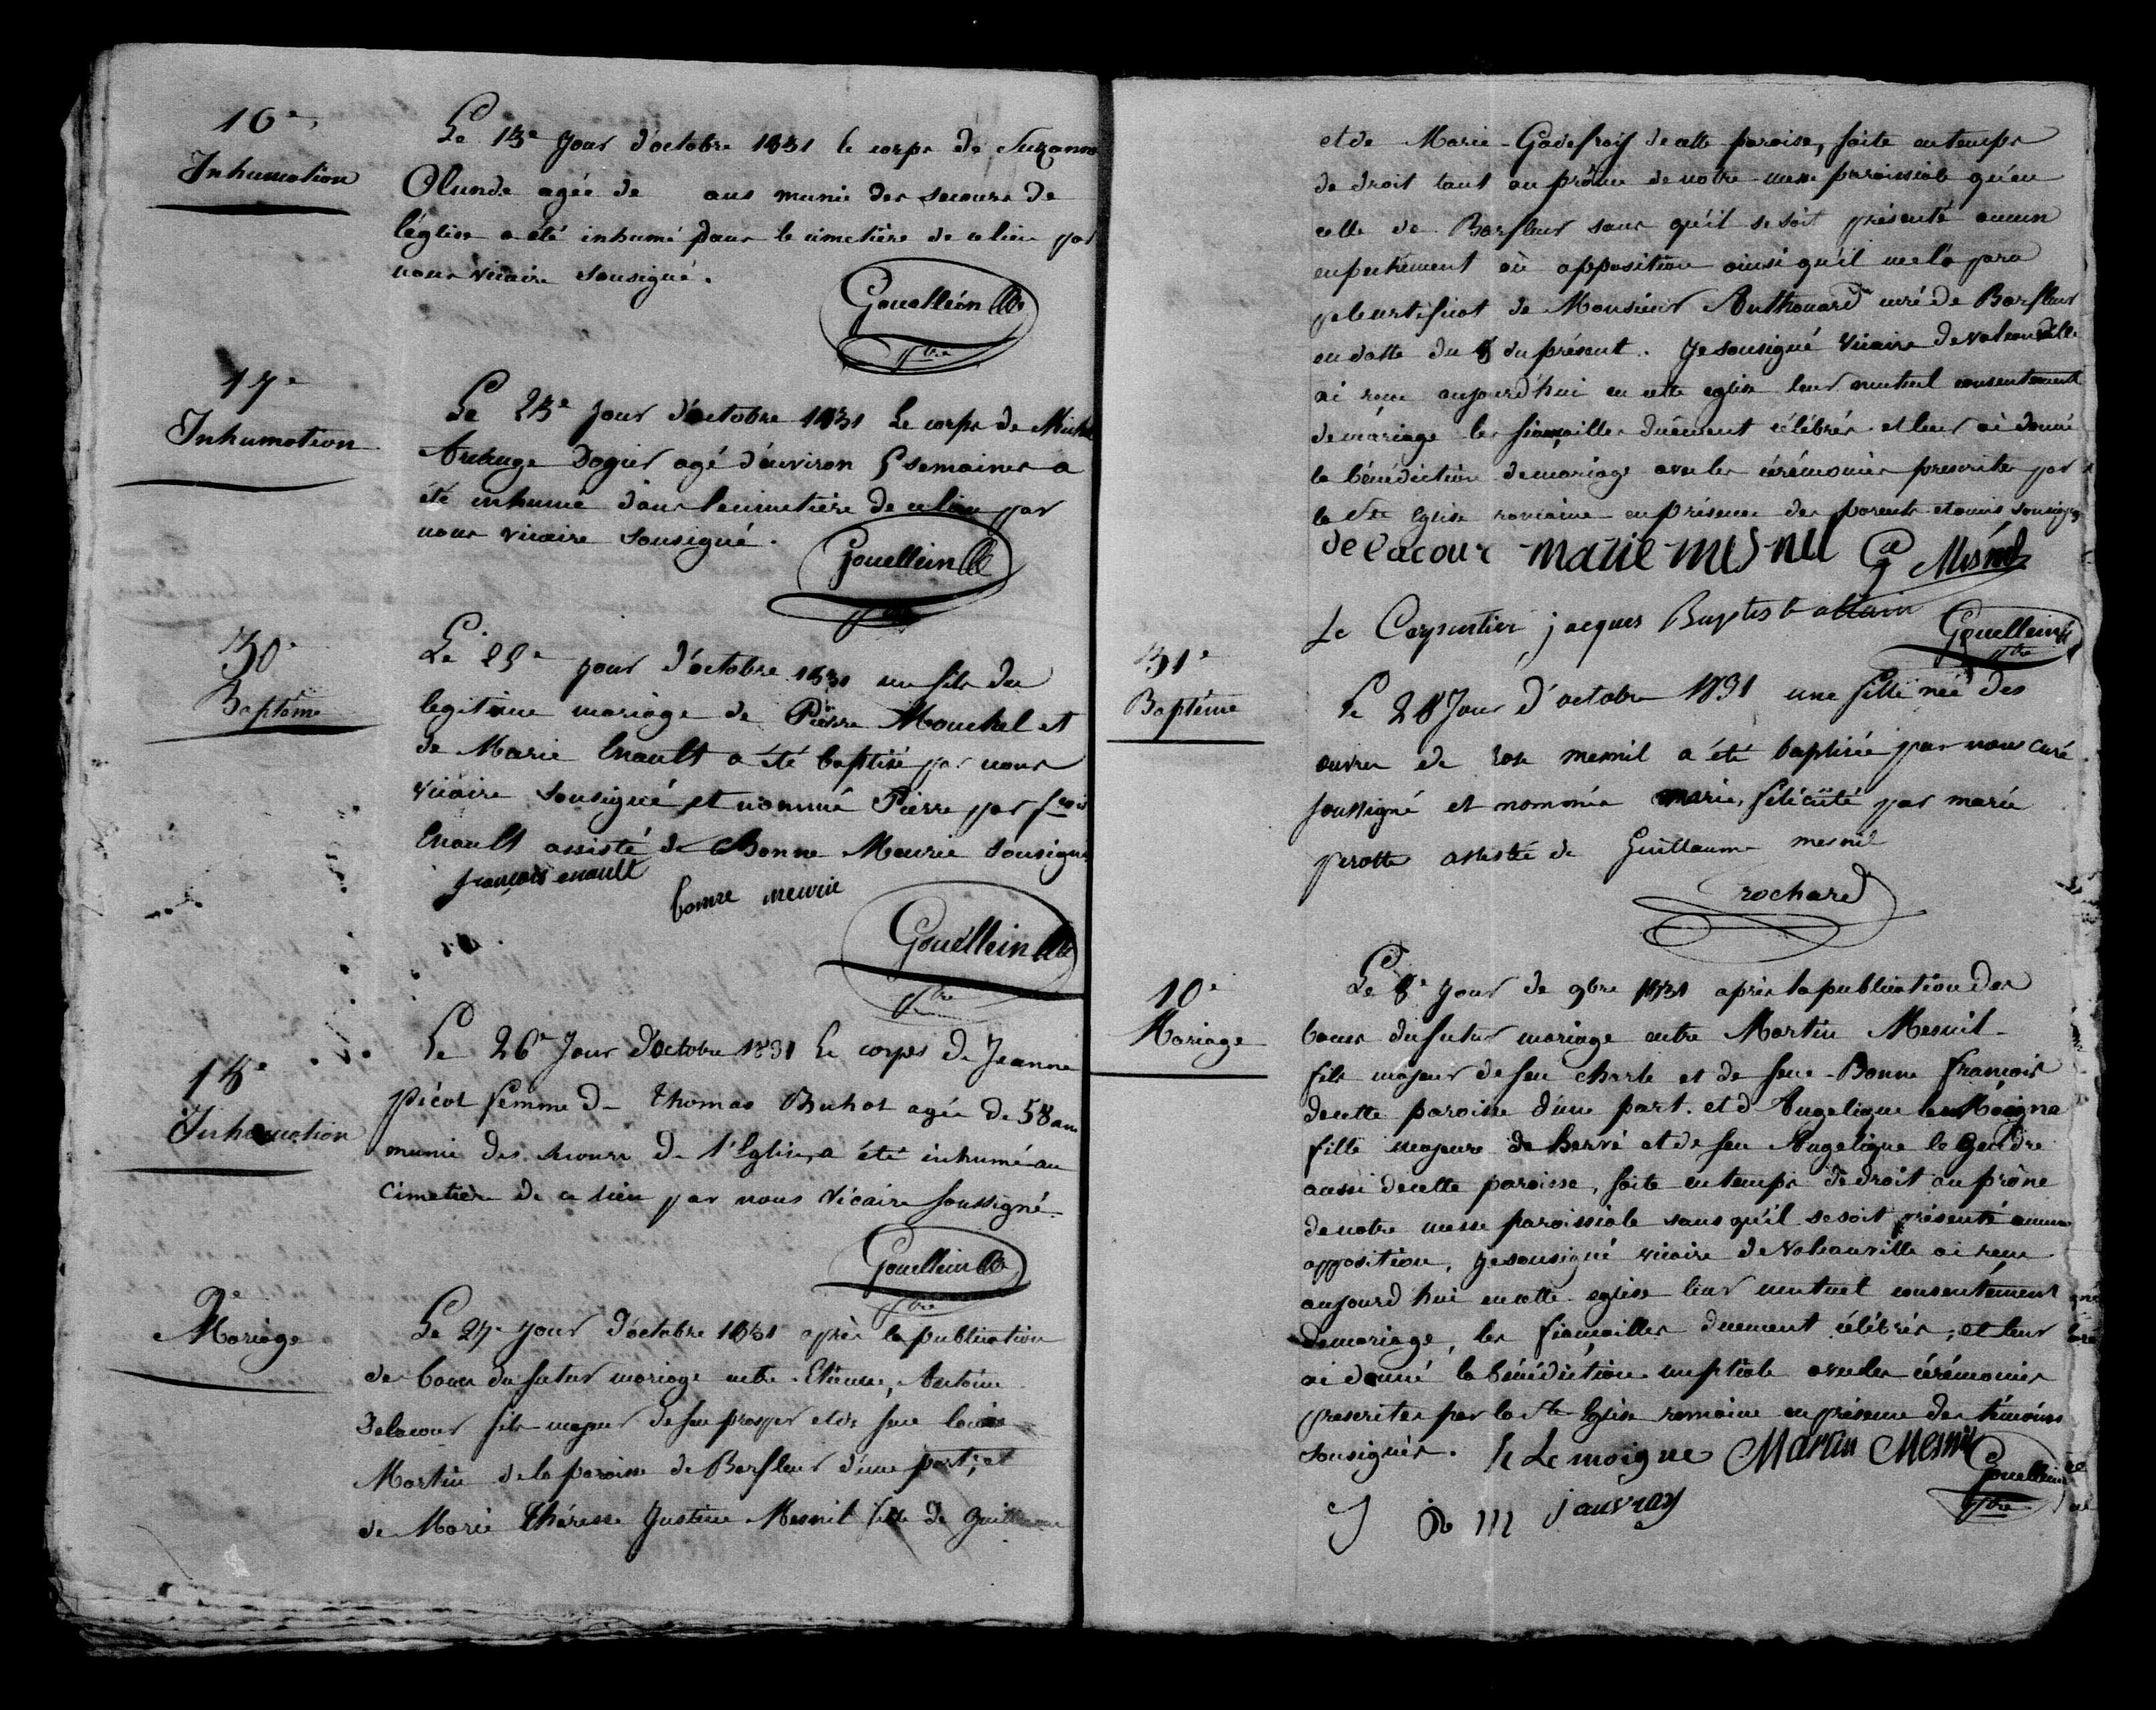 16e
Inhumation
Le 13e Jour d'octobre 1831 le corps de Suzanne
Olunde agée de ans munie des secours de
l'église a été inhumé dans le cimetière de ce lieu par
nous vicaire sousigné.
Gouellein
ptre
17e
Inhumation
Le 23e Jour d'octobre 1831 Le corps de Michel
Archange Dogier agé d'environ 5 semaines a
été inhumé dans le cimetière de ce lieu par
nous vicaire sousigné.
Gouellein
ptre
30e
Baptême
Le 25e jour d'octobre 1831 un fils du
legitime mariage de Pierre Mouchel et
de Marie Enault a été baptisé par nous
vicaire sousigné et nommé Pierre par fcois
Enault assisté de Bonne Meurie sousignés
françois enault
bonne meurie
Gouellein
ptre
18e
Inhumation
Le 26e Jour d'octobre 1831 Le corps de Jeanne
picot femme de Thomas Buhot agée de 58 ans
munie des secours de l'Eglise, a été inhumé au
Cimetière de ce lieu par nous Vicaire soussigné
Gouellein
ptre
9e
Mariage
Le 27e jour d'octobre 1831 après la publication
des bancs du futur mariage entre Etienne, Antoine
Delacour fils majeur de feu prosper et de feue louise
Martin de la paroisse de Barfleur d'une part; et
de Marie Thérèse Justine Mesnil fille de Guillaume
et de Marie Godefroy de cette paroise, faite en temps
de droit tant au prône de notre messe paroissiale qu'en
celle de Barfleur sans qu'il se soit présenté aucun
enpechement où opposition ainsi qu'il me l'a paru
p le certificat de Monsieur Anthouard curé de Barfleur
en datte du 8 du présent. Je sousigné Vicaire de valcanville
ai recu aujourd'hui en cette eglise leur mutuel consentement
de mariage les fiançailles duement célébrés et leur ai donné
la bénédiction de mariage avec les cérémonies prescrites par
la Ste Eglise romaine en présence des parents et amis sousignés
delacour marie mesnil G Mesnil
Le Carpentier jacques Baptiste allain
Gouellein
ptre
31e
Baptême
Le 28 Jour d'octobre 1831 une fille née des
œuvres de rose mesnil a été baptisée par nous curé
soussigné et nommée marie, félicité par marie
perotte assistée de Guillaume mesnil
rochard
10e
Mariage
Le 8e jour de 9bre 1831 après la publication des
bancs du futur mariage entre Martin Mesnil
fils majeur de feu charle et de feue Bonne françois
de cette paroisse d'une part. et d'Angelique le Moigne
fille majeure de hervé et de feu Angelique le Gendre
aussi de cette paroisse, faite en temps de droit au prône
de notre messe paroissiale sans qu'il se soit présenté aucune
opposition, je sousigné vicaire de Valcanville ai recu
aujourd'hui en cette eglise leur mutuel consentement
de mariage, les fiançailles duement célébrés, et leur
ai donné la bénédiction nuptiale avec les cérémonies
prescrites par la Ste Eglise romaine en présence des témoins
sousignés. h Le moigne Martin Mesnil
jauvray
Gouellein
ptre